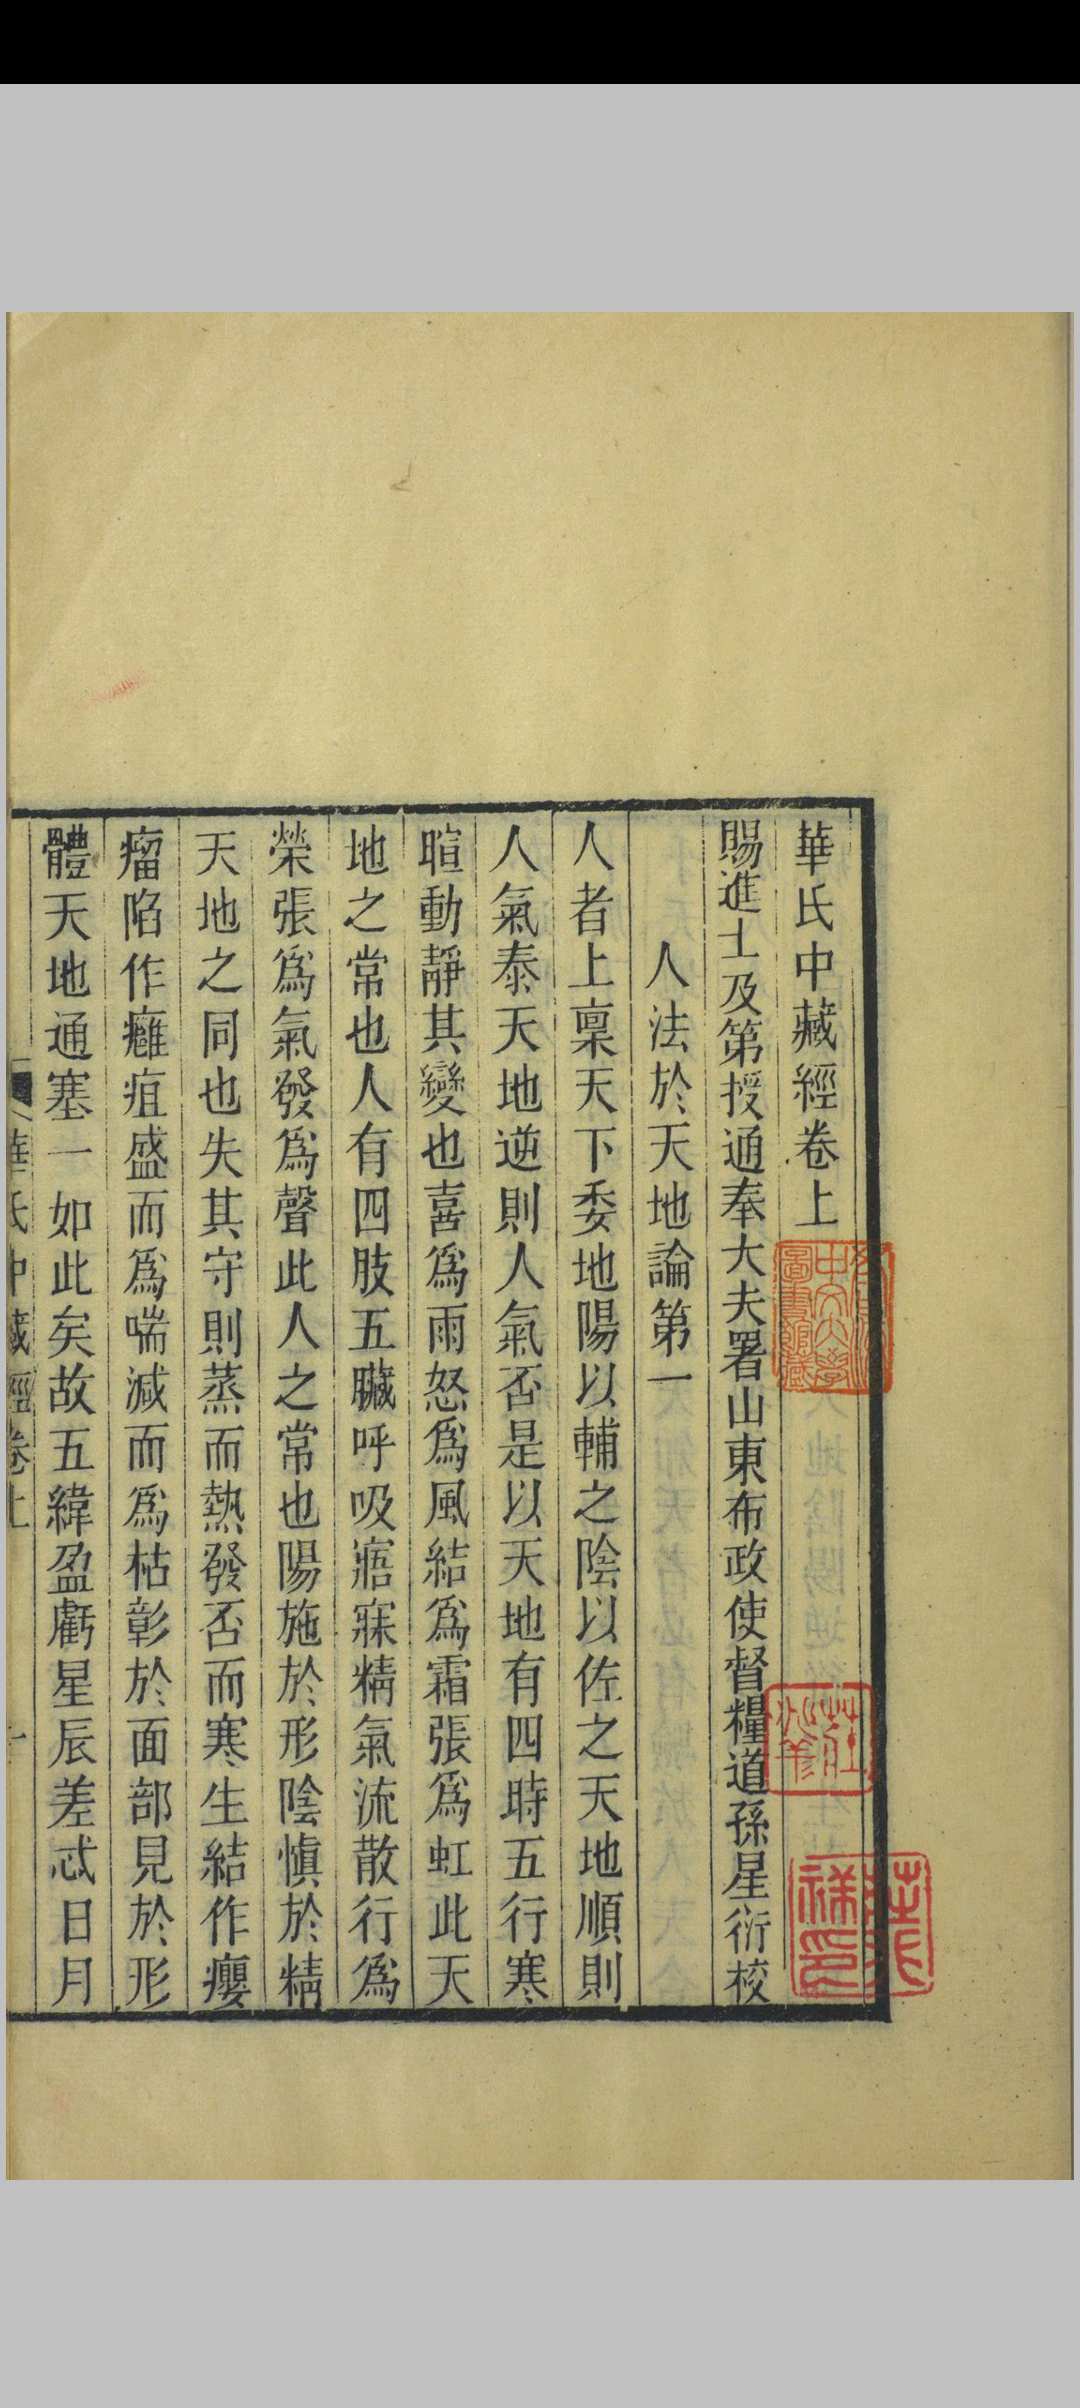 華氏中藏經卷上
賜進士及第授通奉大夫署山東布政使督糧道孫星衍校
人法於天地論第一
人者上稟天下委地陽以輔之陰以佐之天地順則
人氣泰天地逆則人氣否是以天地有四時五行寒
暄動靜其變也喜爲雨怒爲風結爲霜張爲虹此天
地之常也人有四肢五臟呼吸寤寐精氣流散行爲
榮張爲氣發爲聲此人之常也陽施於形陰慎於精
天地之同也失其守則蒸而熱發否而寒生結作癭
瘤陷作癰疽盛而爲喘減而爲枯彰於面部見於形
體天地通塞一如此矣故五緯盈虧星辰差忒日月
華氏中藏經卷上